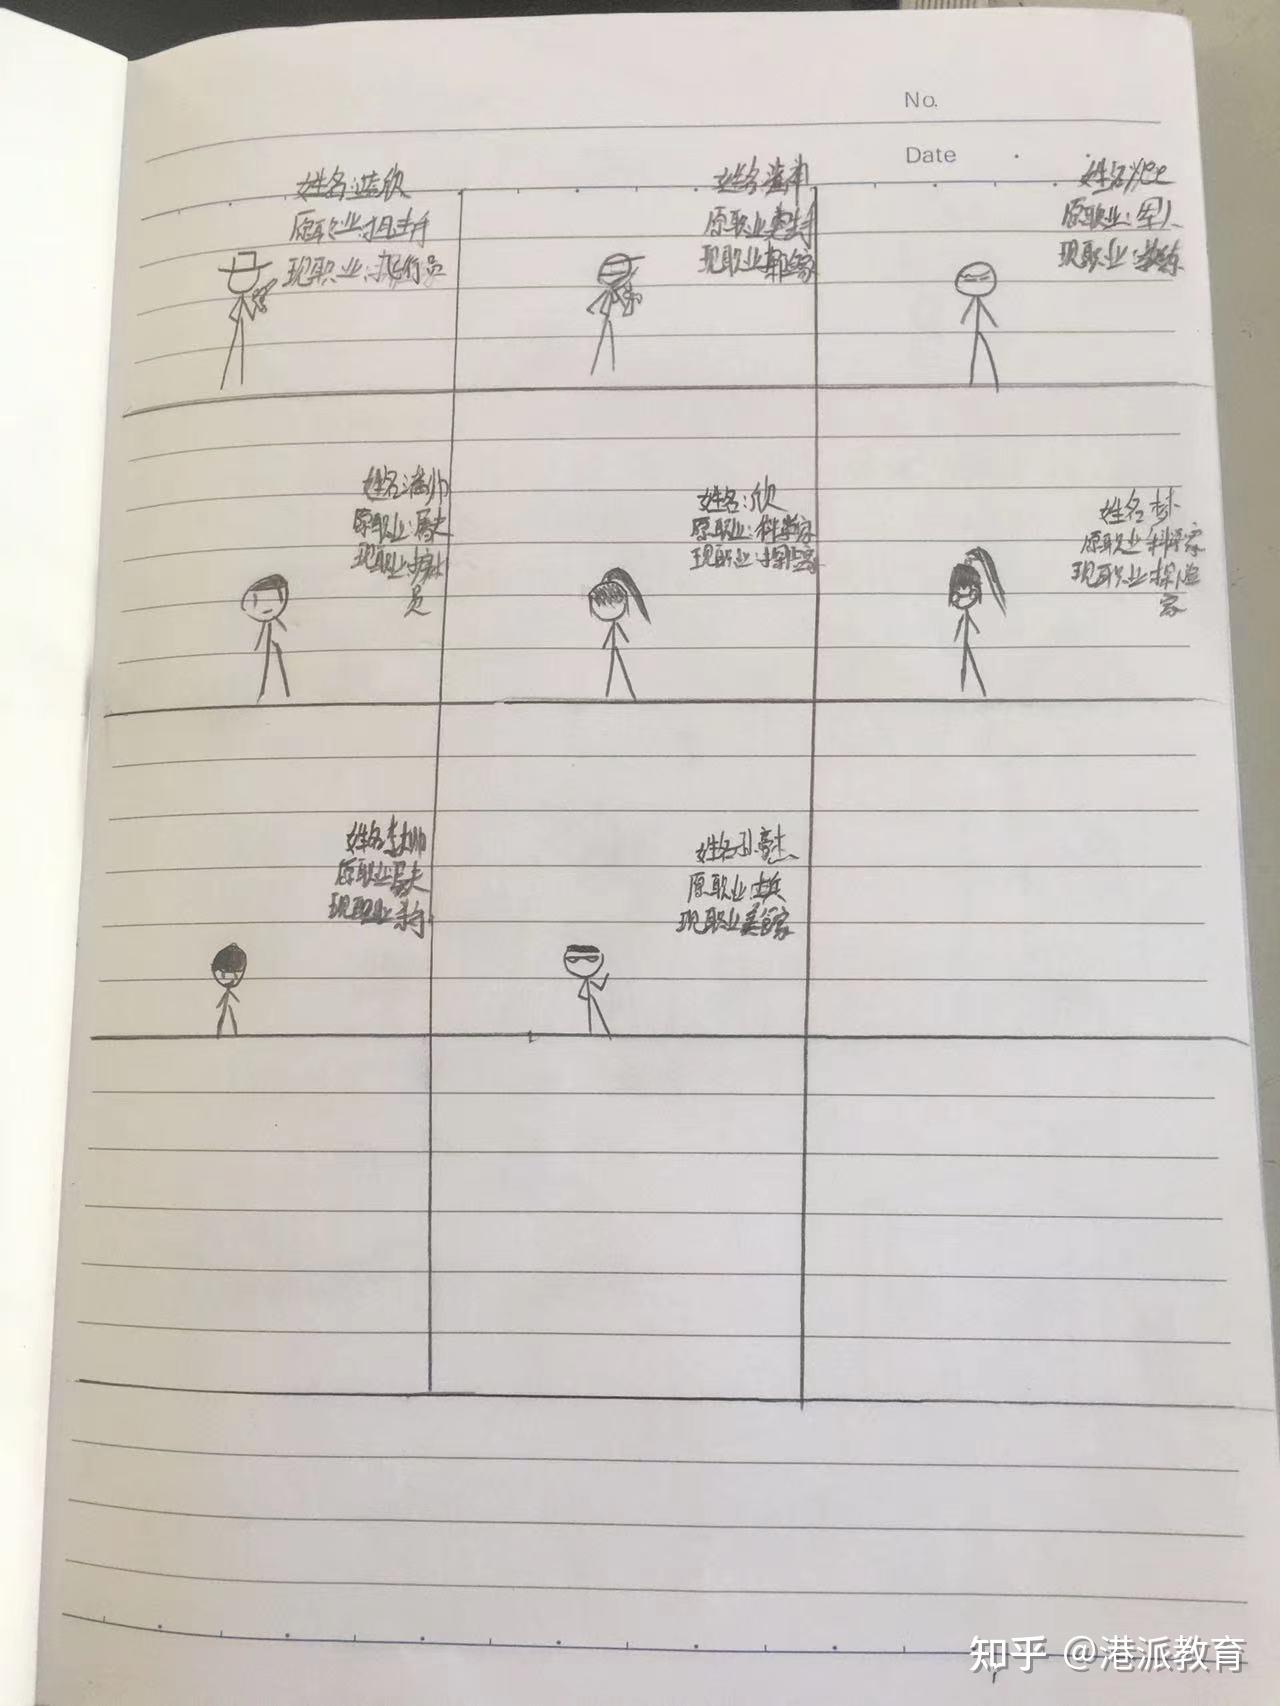 No.
Date
姓名:蓝欣
原职业:狙击手
现职业:飞行员
姓名
原职业
现职业 探险家
姓名
原职业:军人
现职业:教练
姓名:潘帅
原职业:屠夫
现职业
员
姓名:欣
原职业:科学家
现职业:探险家
姓名 梦
原职业 科学家
现职业 探险
家
姓名 李帅
原职业 屠夫
现职业 杀手
姓名 孙豪杰
原职业 士兵
现职业 美食家
知乎 @港派教育